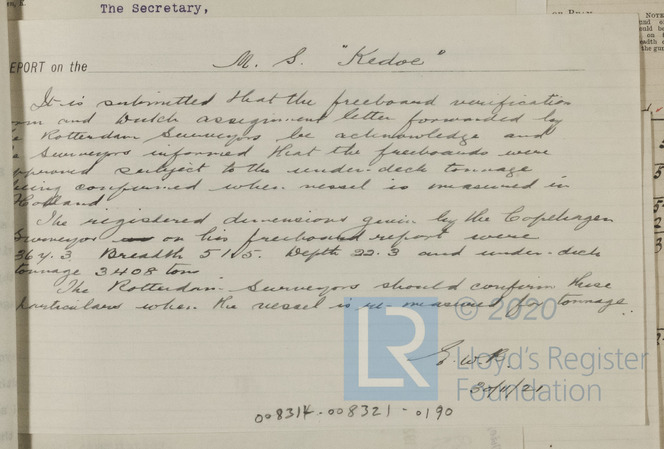 The Secretary,
EPORT on the M. S. "Kedoe"
It is submitted that the freeboard verification
and Dutch assignment letter forwarded by
Rotterdam Surveyors be acknowledge and
Surveyors informed that the freeboards were
approved subject to the under-deck tonnage
being confirmed when vessel is measured in
Holland
The registered dimensions given by the Copenhagen
Surveyor on his freeboard report were
364.3 Breadth 51.5. Depth 22.3 and under-deck
tonnage 3408 tons
The Rotterdam Surveyors should confirm these
particulars when the vessel is re-measured for tonnage.
© 2020
LR
Lloyd's Register
Foundation
G.W.B.
30/11/21
008314-008321-0190